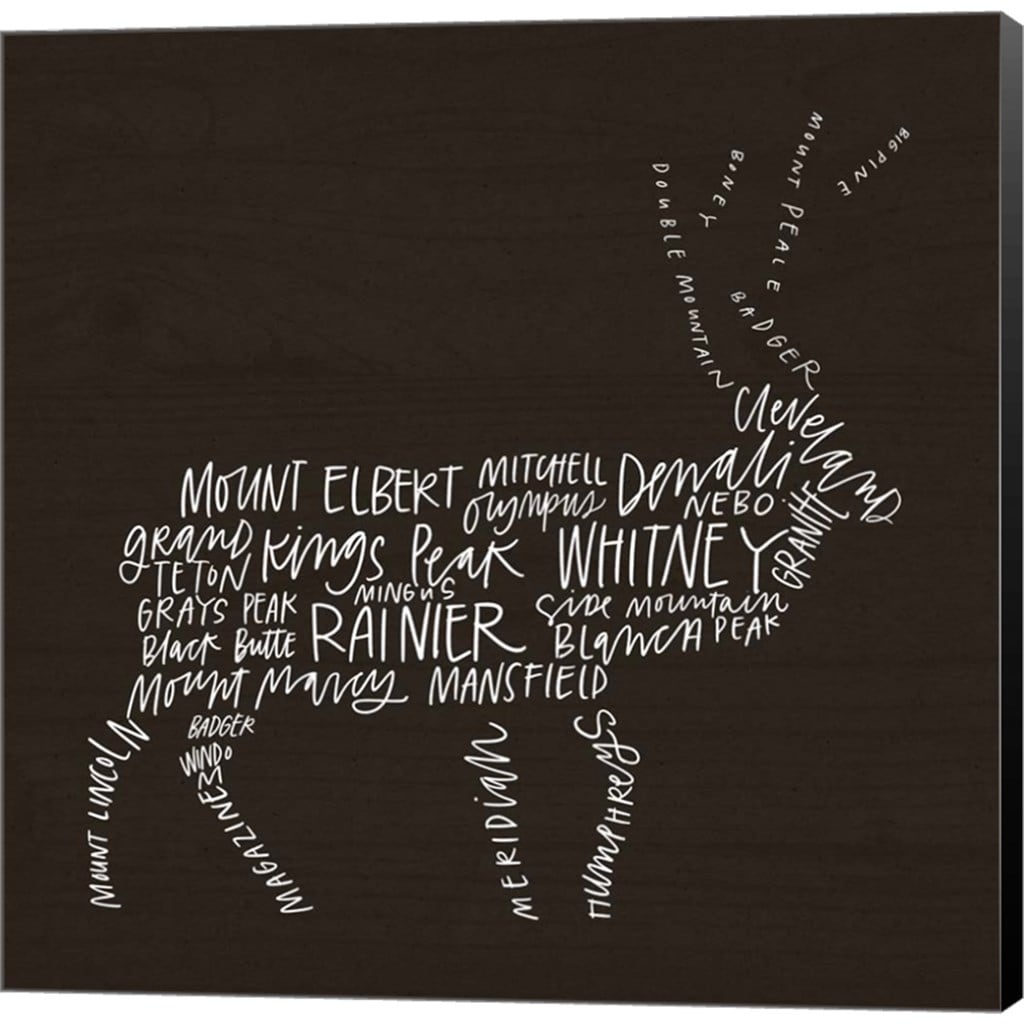 BIG PINE
MOUNT PEALE
BONEY
DOUBLE MOUNTAIN
BADGER
Cleveland
MOUNT ELBERT
MITCHELL
Olympus
Denali
NEBO
GRANITE
grand
TETON
kings Peak
WHITNEY
MINGUS
GRAYS PEAK
RAINIER
Side mountain
Black Butte
Blanca PEAK
Mount Marcy
MANSFIELD
MOUNT LINCOLN
BADGER
WINDOM
MAGAZINE
MERIDIAN
HUMPHREYS